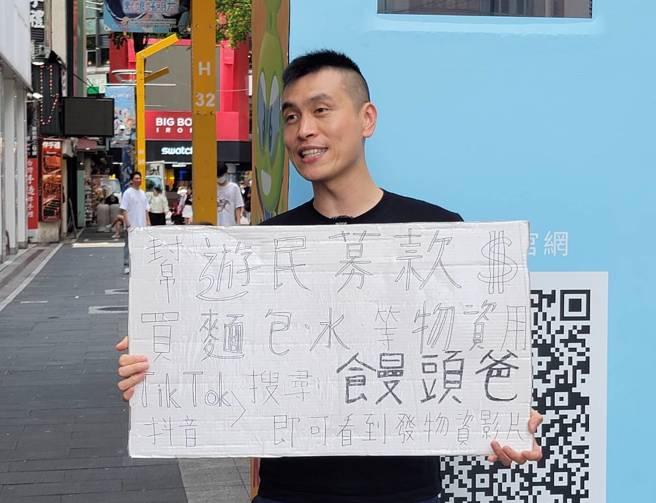 H
32
BIG BO
swatch
官網
幫遊民募款$
買麵包、水 等物資用
TikTok 搜尋: 饅頭爸
抖音 即可看到發物資影片